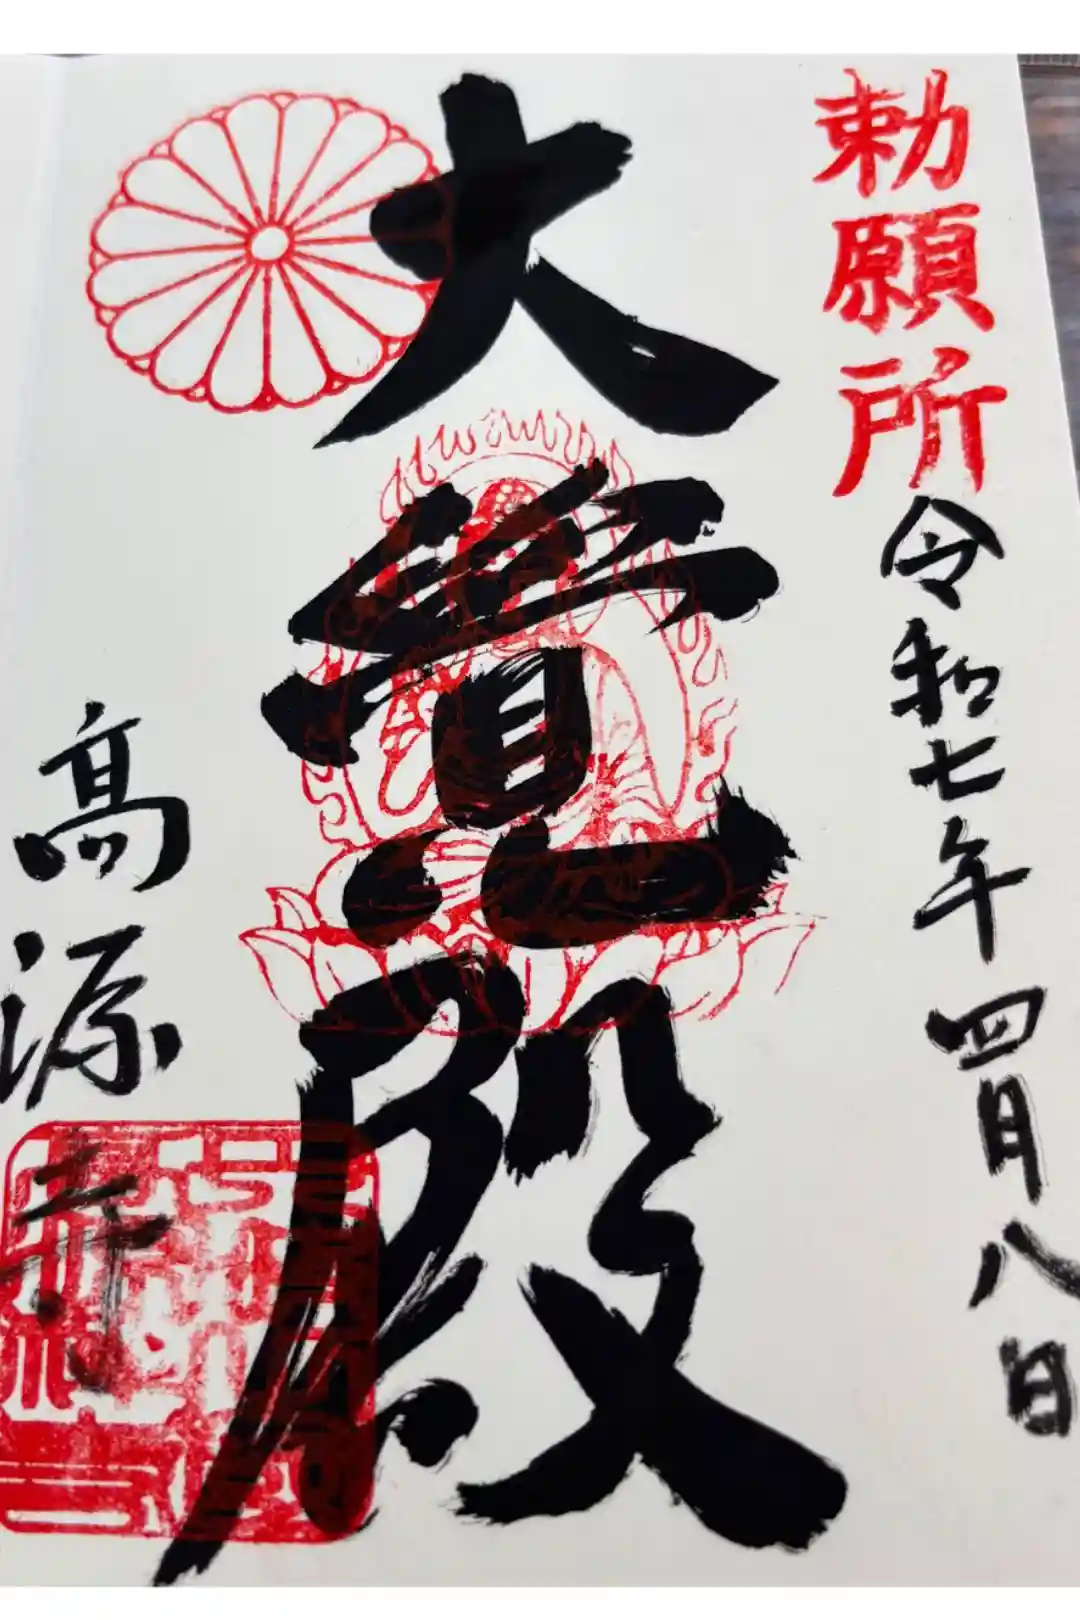 勅願所
令和七年四月八日
大覚殿
高源寺